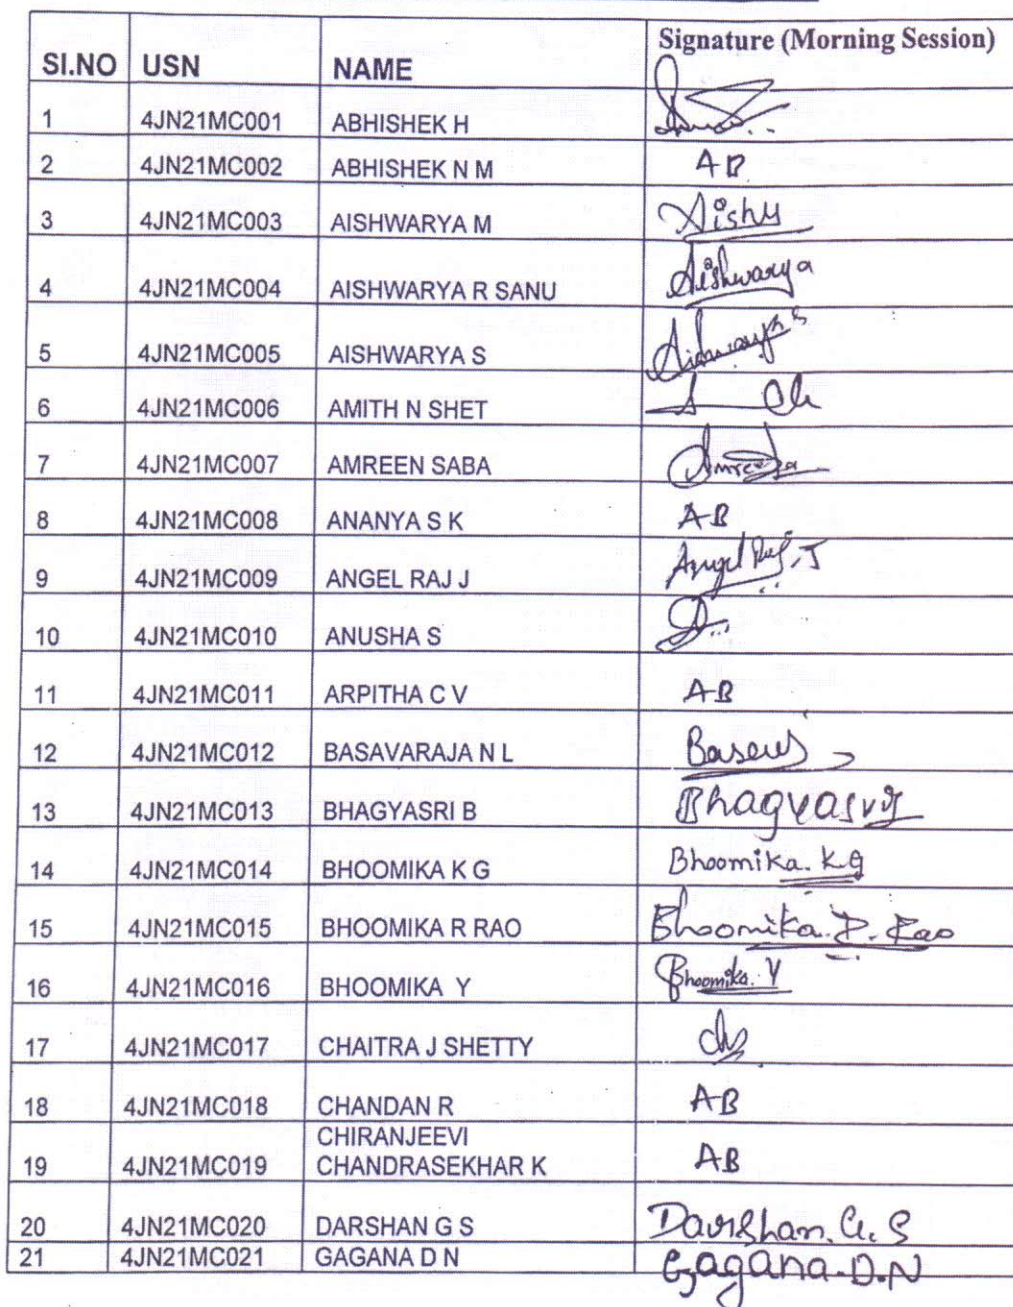 SI.NO USN NAME Signature (Morning Session)
1 4JN21MC001 ABHISHEK H
2 4JN21MC002 ABHISHEK N M AB
3 4JN21MC003 AISHWARYA M Aishu
4 4JN21MC004 AISHWARYA R SANU Aishwarya
5 4JN21MC005 AISHWARYA S
6 4JN21MC006 AMITH N SHET
7 4JN21MC007 AMREEN SABA
8 4JN21MC008 ANANYA S K AB
9 4JN21MC009 ANGEL RAJ J Angel Raj. J
10 4JN21MC010 ANUSHA S
11 4JN21MC011 ARPITHA C V AB
12 4JN21MC012 BASAVARAJA N L
13 4JN21MC013 BHAGYASRI B Bhagyasri
14 4JN21MC014 BHOOMIKA K G Bhoomika. K G
15 4JN21MC015 BHOOMIKA R RAO Bhoomika. R. Rao
16 4JN21MC016 BHOOMIKA Y Bhoomika. Y
17 4JN21MC017 CHAITRA J SHETTY
18 4JN21MC018 CHANDAN R AB
CHIRANJEEVI
19 4JN21MC019 CHANDRASEKHAR K AB
20 4JN21MC020 DARSHAN G S Darshan. G. S
21 4JN21MC021 GAGANA D N Gagana. D. N